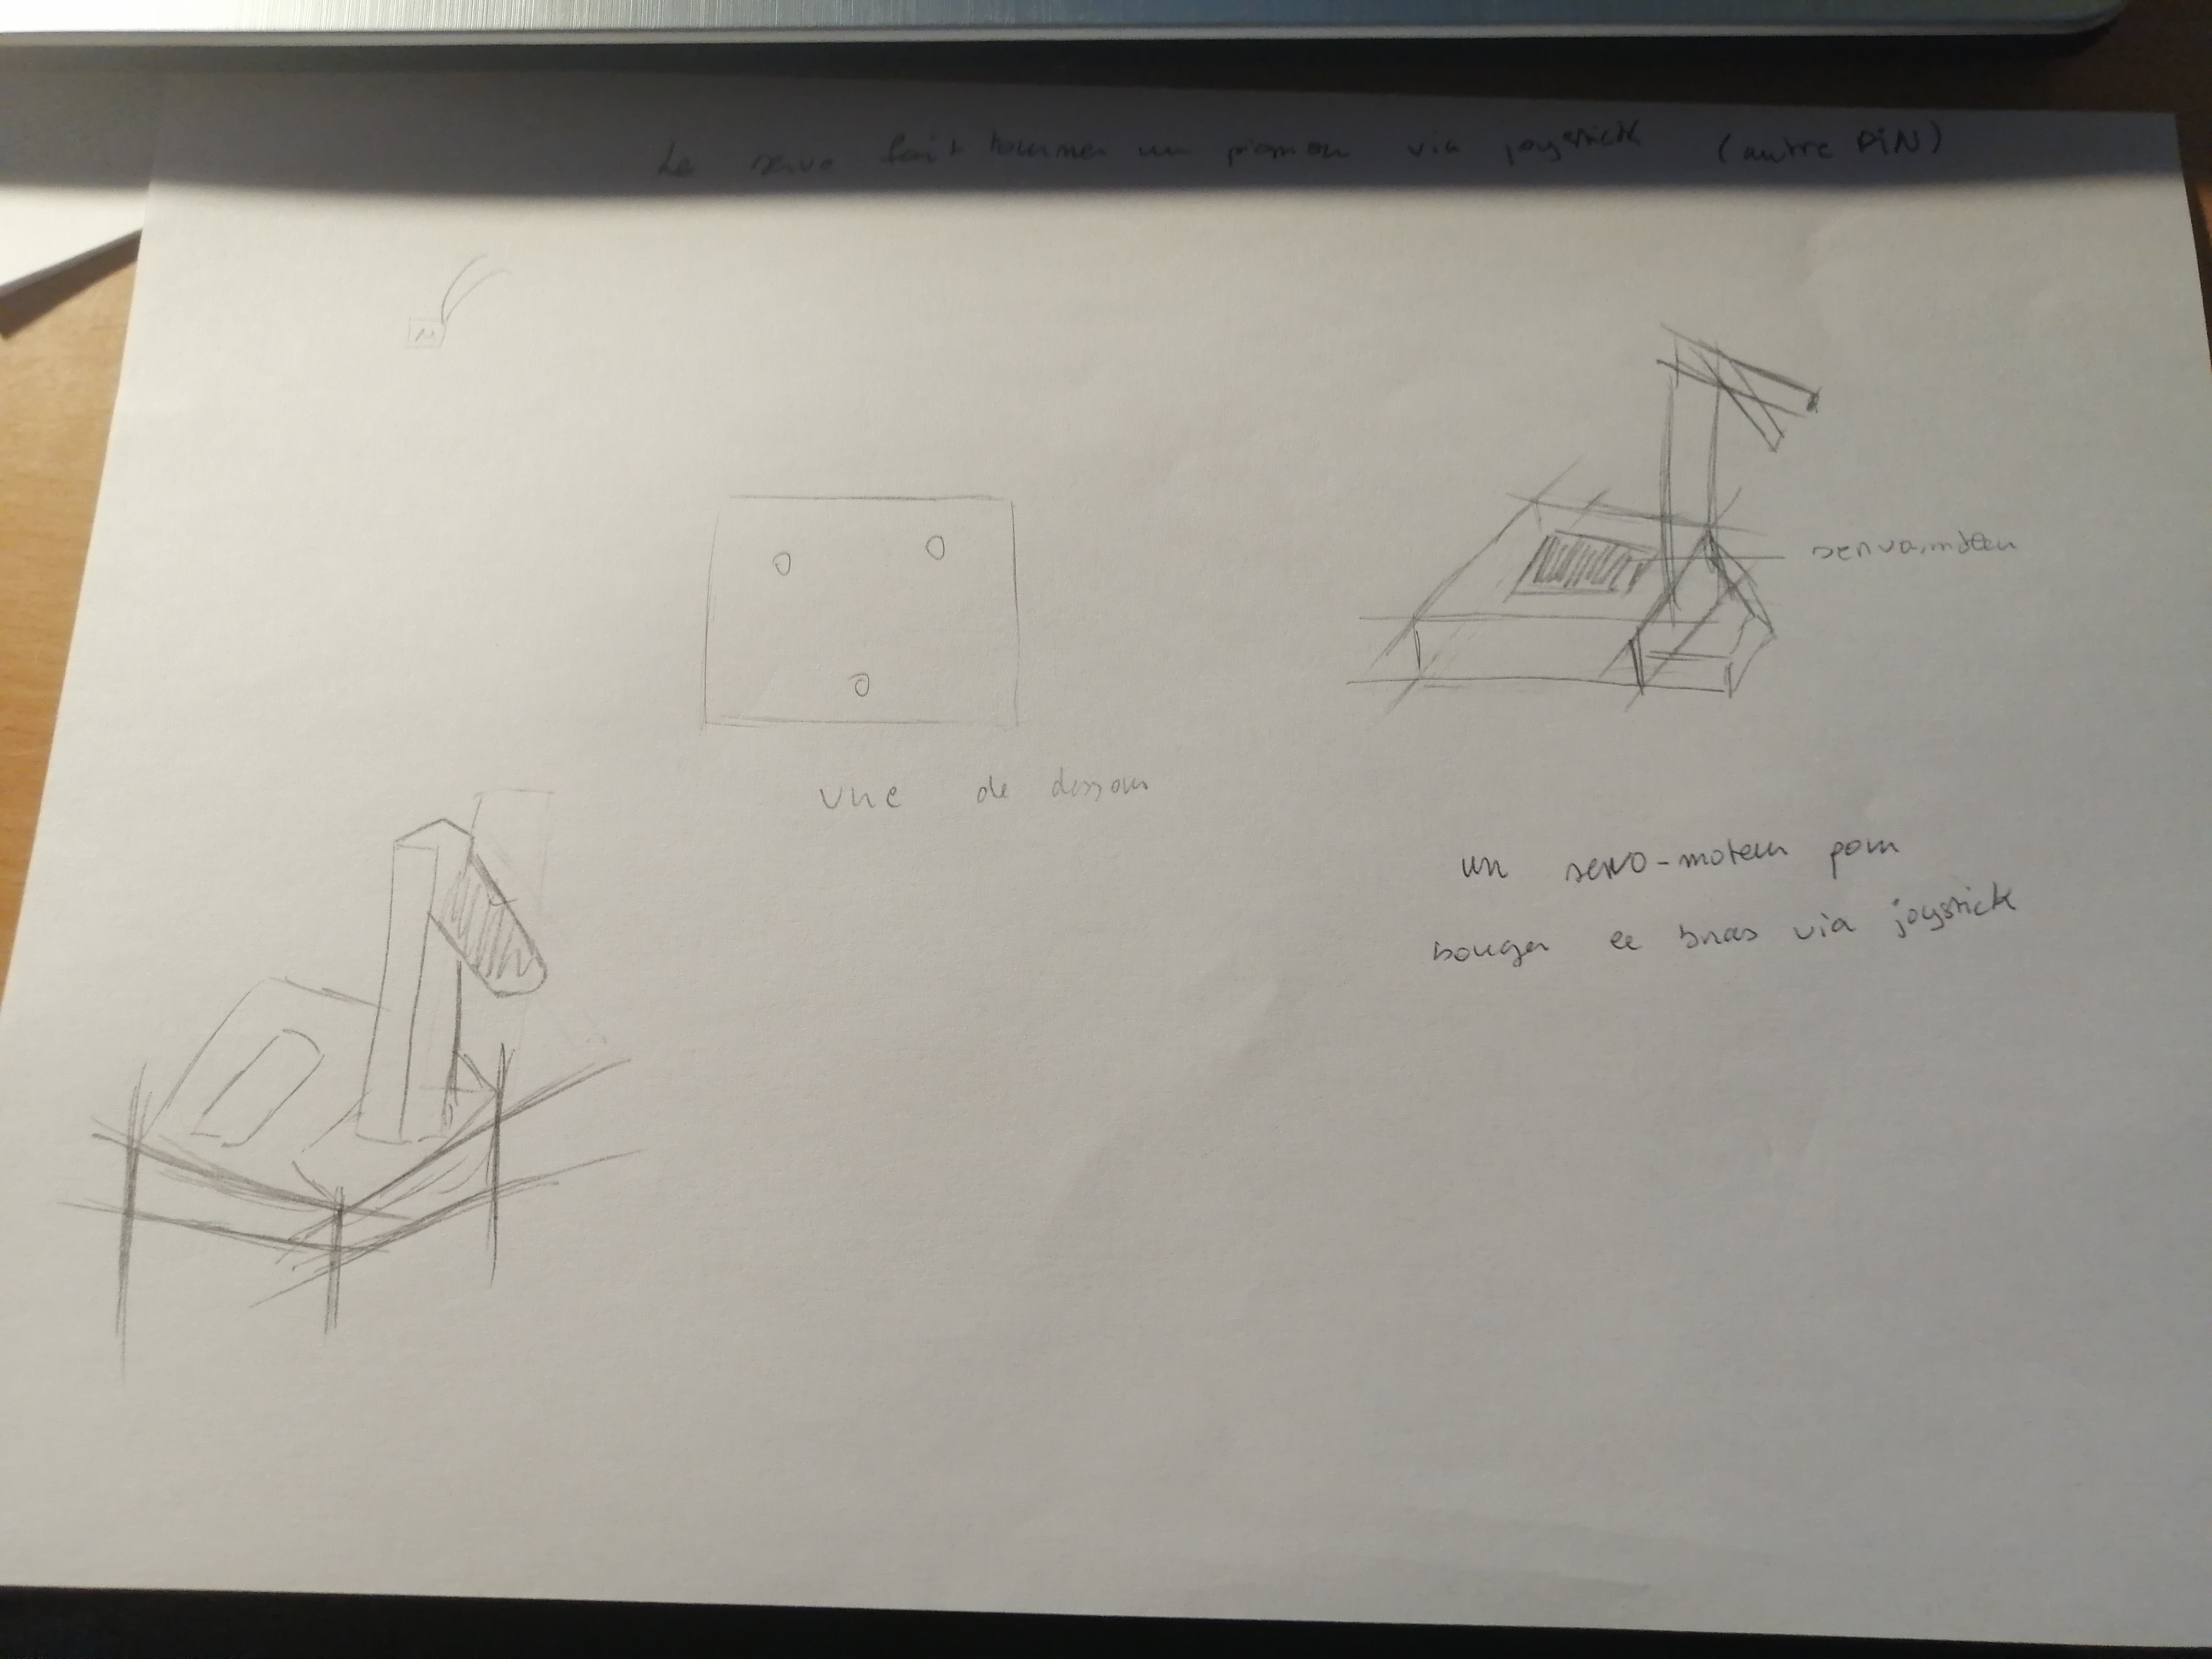 Le servo fait tourner un pignon via joystick (autre PiN)
M
servomoteur
vue de dessous
un servo-moteur pour
bouger le bras via joystick